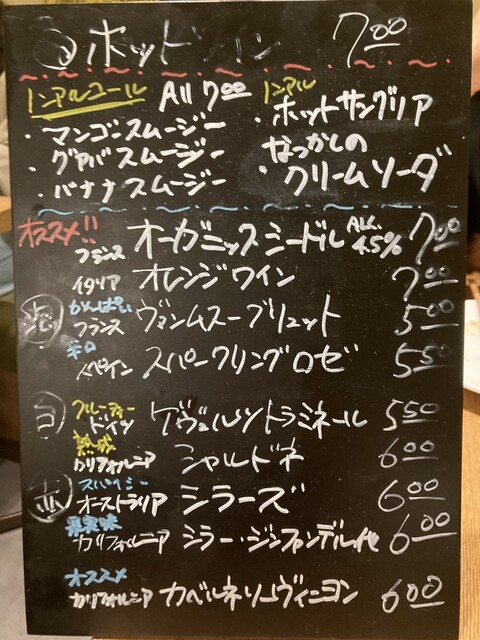 ホットワイン 700
ノンアルコール All 700
・マンゴースムージー
・グァバスムージー
・バナナスムージー
ノンアル
・ホットサングリア
・なつかしの
クリームソーダ
オススメ!!
フランス オーガニックシードル ALC. 4.5% 700
イタリア オレンジワイン 700
泡 かんぱい
フランス ヴァンムスーブリュット 500
辛口
スペイン スパークリングロゼ 550
白 フルーティー
ドイツ ゲヴュルツトラミネール 550
熟成
カリフォルニア シャルドネ 600
赤 スパイシー
オーストラリア シラーズ 600
果実味
カリフォルニア シラー・ジンファンデル他 600
オススメ
カリフォルニア カベルネソーヴィニヨン 600